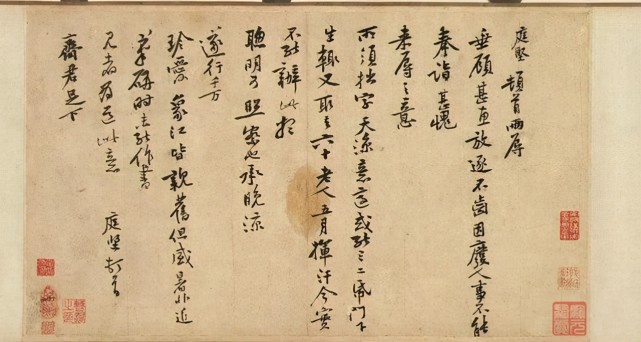 庭堅頓首兩辱
垂顧甚惠放逐不齒因廢人事不能
奉詣甚愧
來辱之意
所須拙字天涼意適或能三二紙門下
生輒又取之六十老人五月揮汗今實
不能辦此想
聰明可照察也承晚涼
遂行千万
珍愛象江皆親舊但盛暑非近
筆硯時未能作書
見者為道此意庭堅頓首
齋君足下